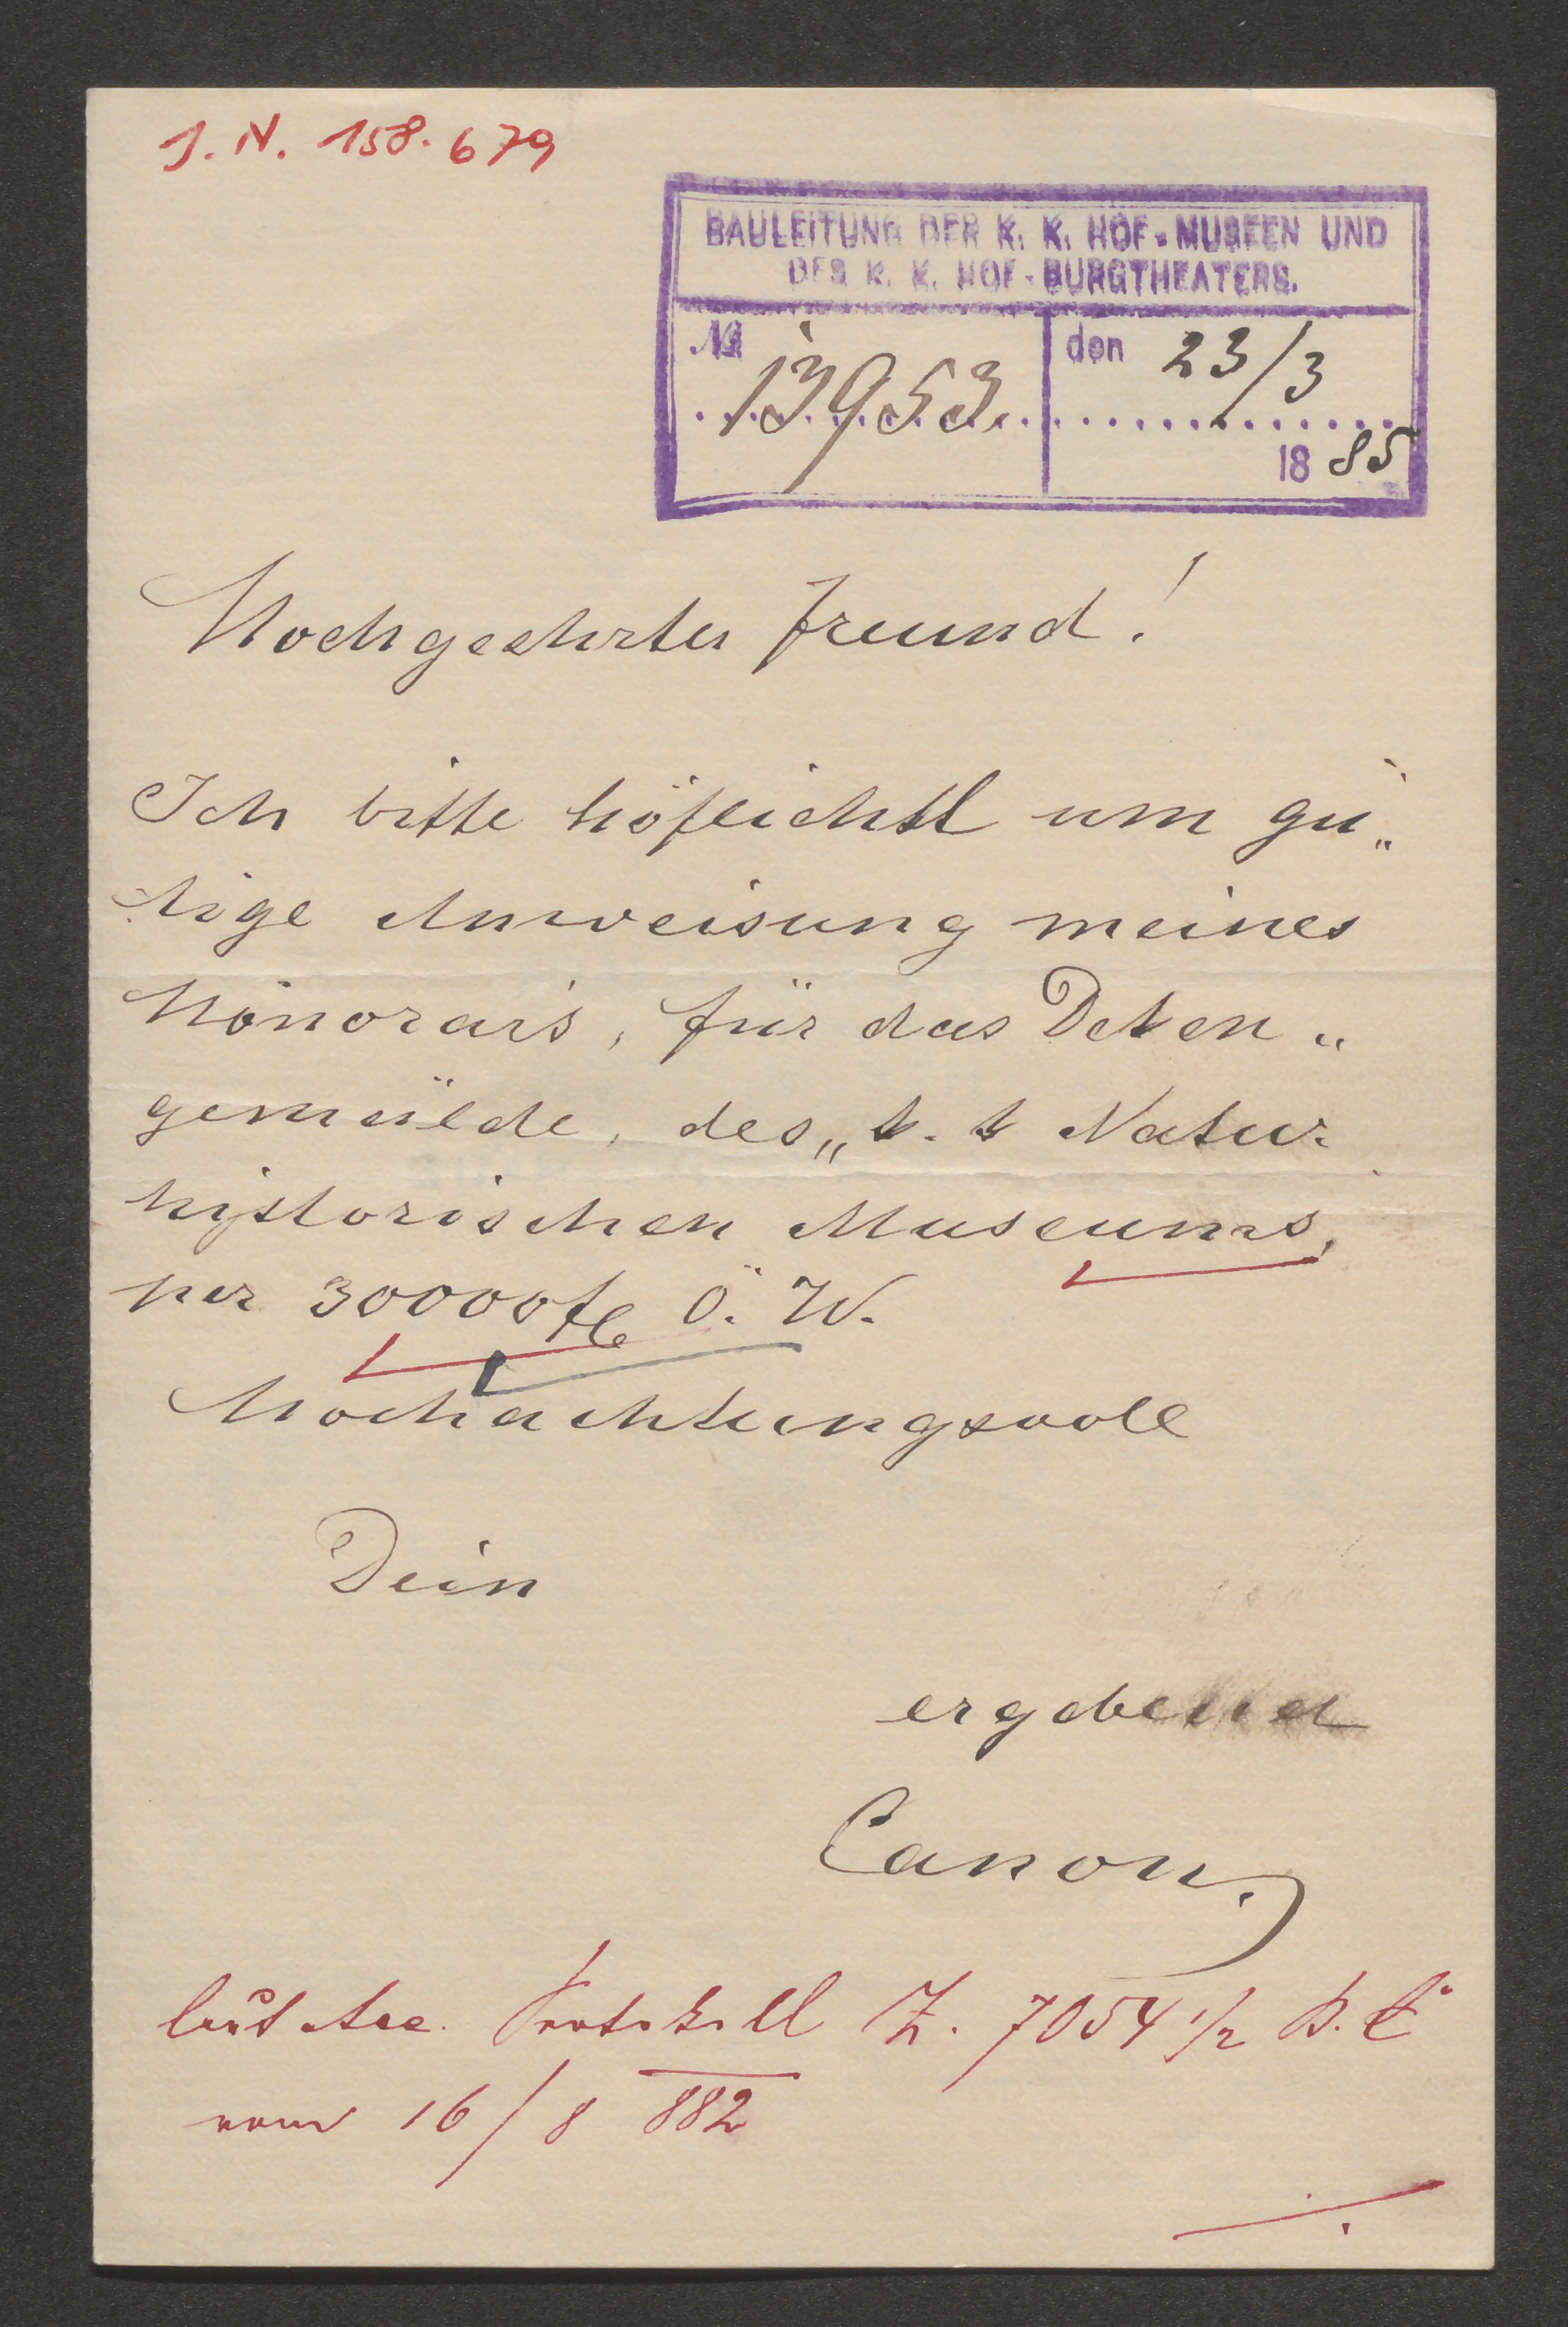 J. N. 158.679
BAULEITUNG DER K. K. HOF-MUSEEN UND
DES K. K. HOF-BURGTHEATERS.
№ 13953 den 23/3
1885
Hochgeehrter Freund!
Ich bitte höflichst um gü„
tige Anweisung meines
Honorar's, für das Deken„
gemälde, des„ k. k Natur
historischen Museums,
per 30000 fl Ö. W.
Hochachtungsvoll
Dein
ergebener
Canon.
laut Protokoll Z. 7054 1/2
vom 16/8 882